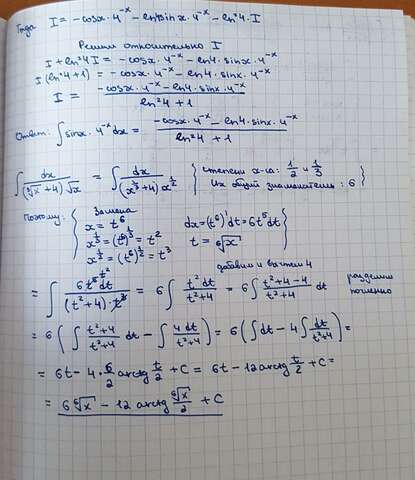 Тогда I = -cosx·4^{-x} - ln4 sinx·4^{-x} - ln²4·I
Решим относительно I
I + ln²4 I = -cosx·4^{-x} - ln4·sinx·4^{-x}
I(ln²4+1) = -cosx·4^{-x} - ln4·sinx·4^{-x}
I = (-cosx·4^{-x} - ln4·sinx·4^{-x}) / (ln²4+1)
Ответ: ∫sinx·4^{-x}dx = (-cosx·4^{-x} - ln4·sinx·4^{-x}) / (ln²4+1)
∫ dx / ((∛x+4)√x) = ∫ dx / ((x^{1/3}+4) x^{1/2}) { степени x-са: 1/2 и 1/3
Их общий знаменатель: 6 }
Поэтому: { Замена
x = t^6 dx = (t^6)' dt = 6t^5 dt
x^{1/3} = (t^6)^{1/3} = t² t = ⁶√x }
x^{1/2} = (t^6)^{1/2} = t³
добавим и вычтем 4
= ∫ 6t^5 dt / ((t²+4)·t³) = 6∫ t² dt / (t²+4) = 6∫ (t²+4-4) / (t²+4) dt разделим почленно
= 6(∫ (t²+4)/(t²+4) dt - ∫ 4dt/(t²+4)) = 6(∫dt - 4∫ dt/(t²+4)) =
= 6t - 4·6/2 arctg t/2 + C = 6t - 12 arctg t/2 + C =
= 6 ⁶√x - 12 arctg ⁶√x/2 + C